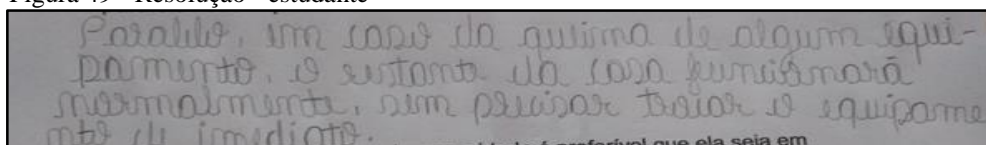 Figura 49 - Resolução - estudante
Paralelo, im caso da queima de algum equi-
pamento, o restante da casa funcionará
normalmente, sem precisar trocar o equipame
nto de imediato.
é preferível que ela seja em